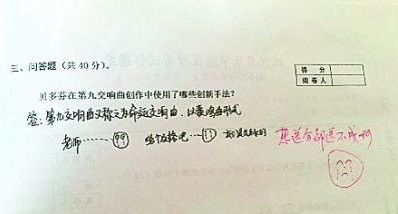 三、问答题（共40分）。
得分
阅卷人
贝多芬在第九交响曲创作中使用了哪些创新手法？
答：第九交响曲又称之为命运交响曲，以奏鸣曲形式
老师……给个及格吧……
想送分都送不成啊